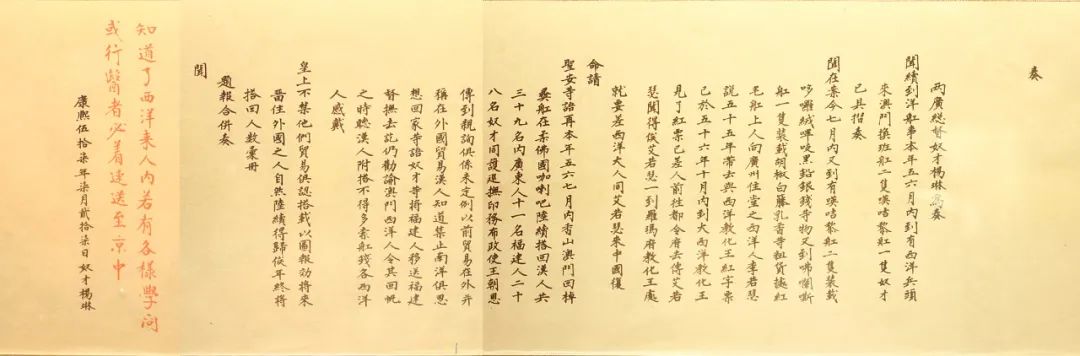 奏
兩廣總督奴才楊琳為奏
聞續到洋舡事本年五六月內到有西洋兵頭
來澳門換班舡二隻𠸄咭黎舡一隻奴才
已具摺奏
聞在案今七月內又到有𠸄咭黎舡二隻裝載
哆囉絨嗶吱黑鉛銀錢等物又到咈囒哂
舡一隻裝載胡椒白藤乳香等粗貨據紅
毛舡上人向廣州住堂之西洋人李若瑟
說五十五年帶去與西洋教化王紅字票
已於五十六年十月內到大西洋教化王
見了紅票已差人前往都令府去傳艾若
瑟聞得俟艾若瑟一到羅瑪府教化王處
就要差西洋大人同艾若瑟來中國復
命請
聖安等語再本年五六七月內香山澳門回棹
彝舡在柔佛國咖喇吧陸續搭回漢人共
三十九名內廣東人十一名福建人二十
八名奴才同護理撫印務布政使王朝恩
傳到親詢俱係未定例以前貿易在外并
稱在外國貿易漢人知道禁止南洋俱思
想回家等語奴才等將福建人移送福建
督撫去訖仍勸諭澳門西洋人令其回帆
之時聽漢人附搭不得多索舡錢各西洋
人感戴
皇上不禁他們貿易俱認搭載以圖報効將來
留住外國之人自然陸續得歸俟年終將
搭回人數彙冊
題報合併奏
聞
知道了西洋來人內若有各樣學問
或行醫者必着速送至京中
康熙伍拾柒年柒月貳拾柒日奴才楊琳